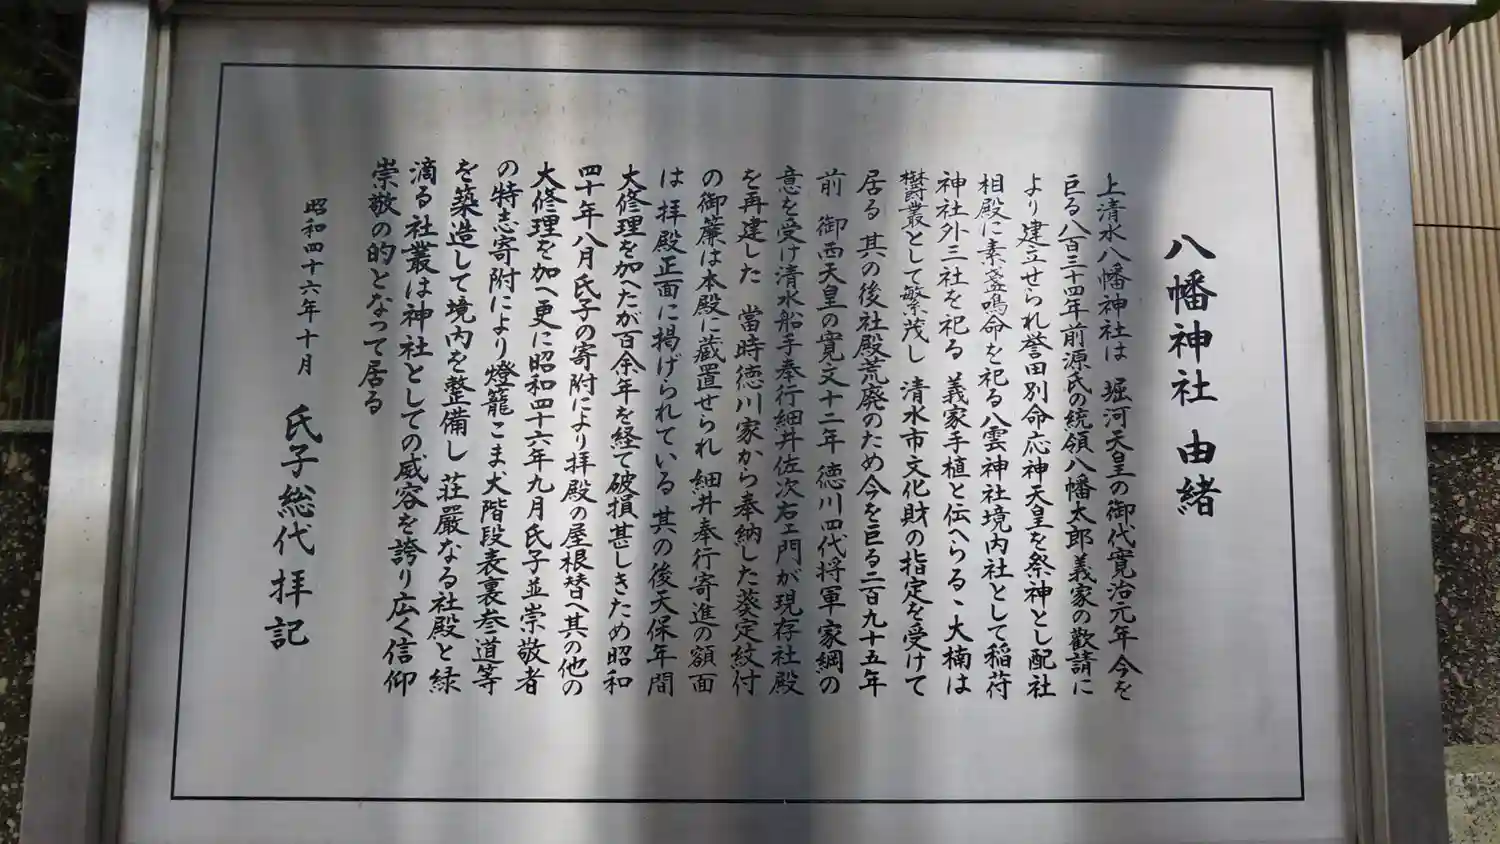 八幡神社 由緒
上清水八幡神社は 堀河天皇の御代寛治元年今を
巨る八百三十四年前源氏の統領八幡太郎義家の歡請に
より建立せられ誉田別命応神天皇を祭神とし配社
相殿に素盞鳴命を祀る八雲神社境内社として稲荷
神社外三社を祀る 義家手植と伝へらるゝ大楠は
樹叢として繁茂し 清水市文化財の指定を受けて
居る 其の後社殿荒廃のため今を巨る二百九十五年
前 御西天皇の寛文十二年 徳川四代将軍家綱の
意を受け清水船手奉行細井佐次右エ門が現存社殿
を再建した 當時徳川家から奉納した葵定紋付
の御簾は本殿に蔵置せられ 細井奉行寄進の額面
は 拝殿正面に掲げられている 其の後天保年間
大修理を加へたが百余年を経て破損甚しきため昭和
四十年八月氏子の寄附により拝殿の屋根替へ其の他の
大修理を加へ更に昭和四十六年九月氏子並崇敬者
の特志寄附により燈籠こま犬階段表裏参道等
を築造して境内を整備し 荘嚴なる社殿と緑
滴る社叢は神社としての威容を誇り広く信仰
崇敬の的となって居る
昭和四十六年十月 氏子総代 拝記